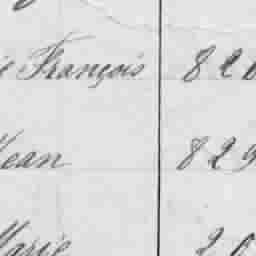 François 82
Jean 829
Marie 20